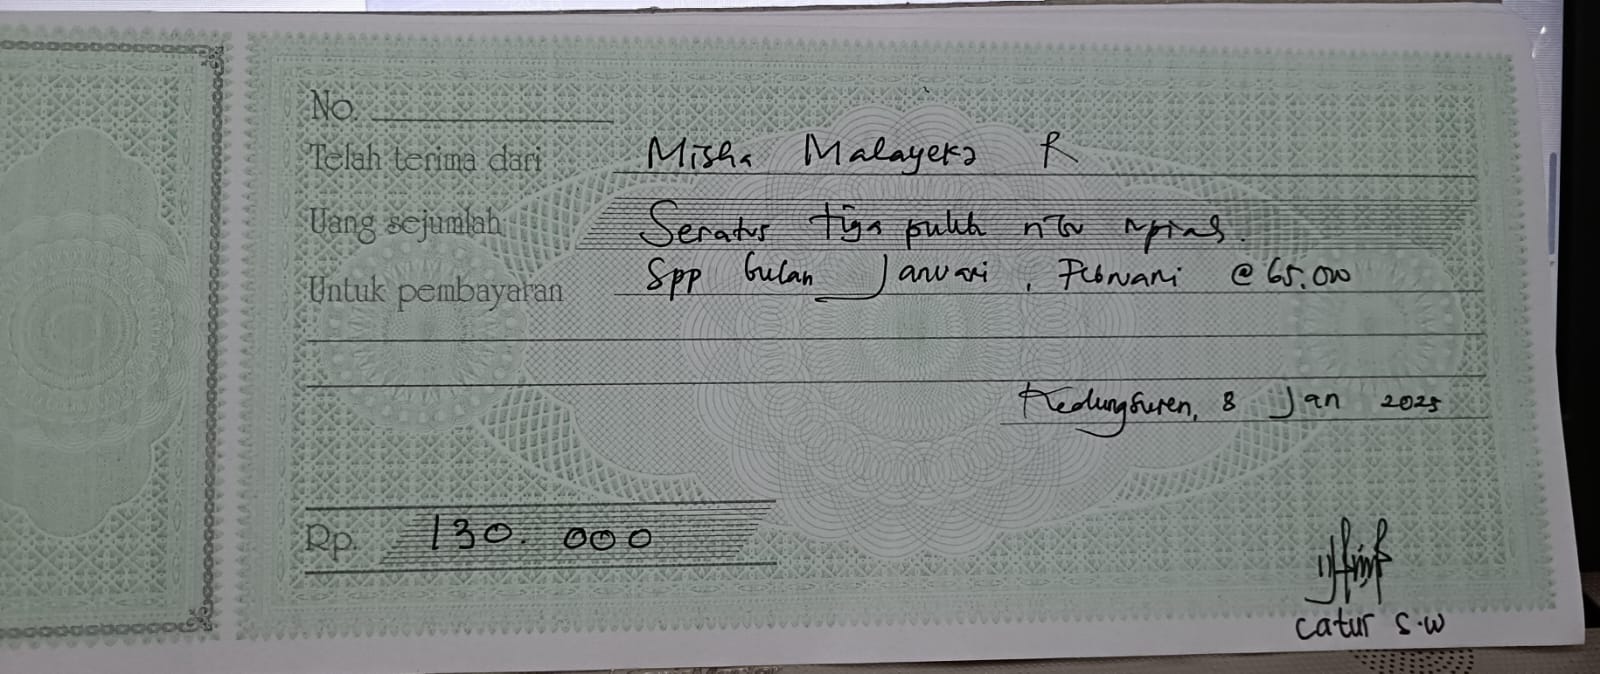 No.
Telah terima dari Misha Malayeka R
Uang sejumlah Seratus tiga puluh ribu rupiah.
Untuk pembayaran Spp bulan Januari, Februari @ 65.000
Kedungsuren, 8 Jan 2025
Rp. 130.000
catur s.w